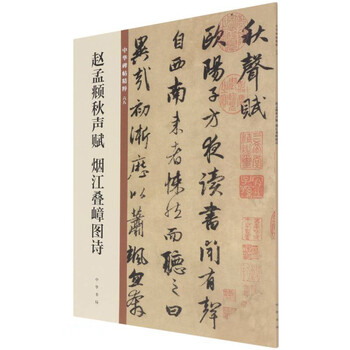 中华碑帖精粹
赵孟頫秋声赋 烟江叠嶂图诗
中华书局
秋聲賦
歐陽子方夜讀書聞有聲
自西南来者悚然而聽之曰
異哉初淅瀝以蕭颯忽奔